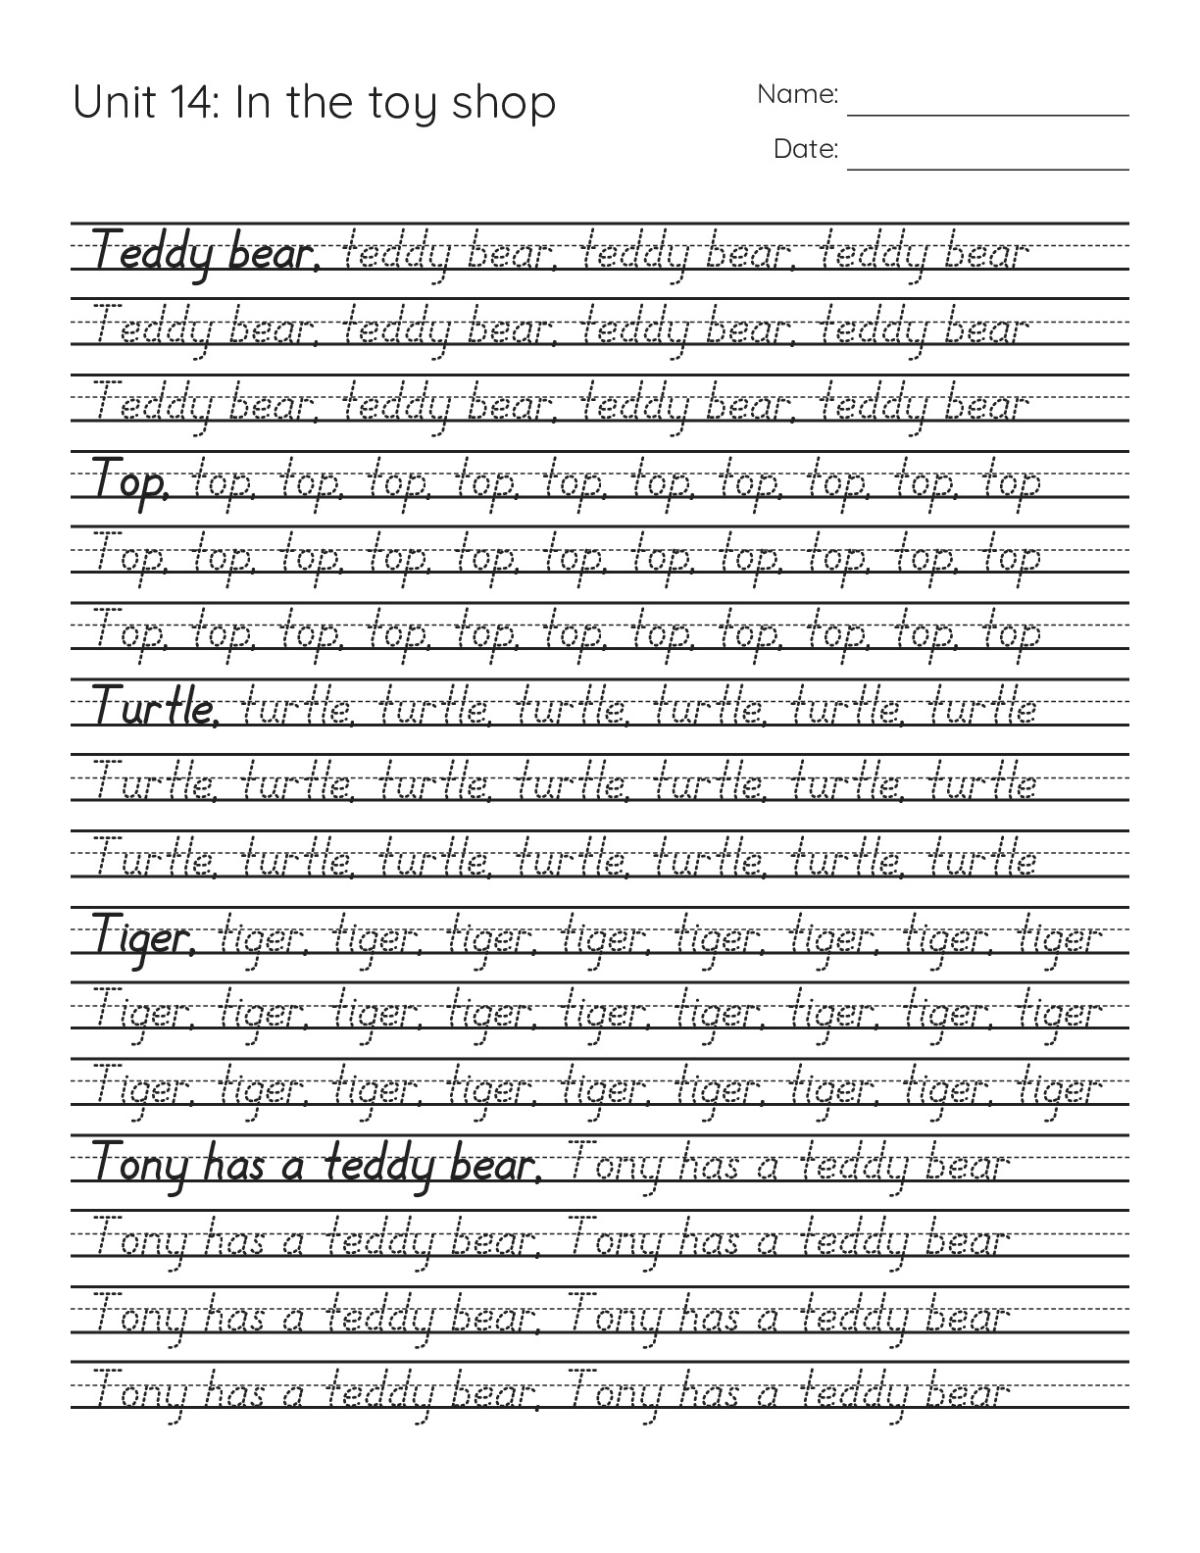 Unit 14: In the toy shop
Name:
Date:
Teddy bear, teddy bear, teddy bear, teddy bear
Teddy bear, teddy bear, teddy bear, teddy bear
Teddy bear, teddy bear, teddy bear, teddy bear
Top, top, top, top, top, top, top, top, top, top, top
Top, top, top, top, top, top, top, top, top, top, top
Top, top, top, top, top, top, top, top, top, top, top
Turtle, turtle, turtle, turtle, turtle, turtle, turtle
Turtle, turtle, turtle, turtle, turtle, turtle, turtle
Turtle, turtle, turtle, turtle, turtle, turtle, turtle
Tiger, tiger, tiger, tiger, tiger, tiger, tiger, tiger, tiger
Tiger, tiger, tiger, tiger, tiger, tiger, tiger, tiger, tiger
Tiger, tiger, tiger, tiger, tiger, tiger, tiger, tiger, tiger
Tony has a teddy bear, Tony has a teddy bear
Tony has a teddy bear, Tony has a teddy bear
Tony has a teddy bear, Tony has a teddy bear
Tony has a teddy bear, Tony has a teddy bear